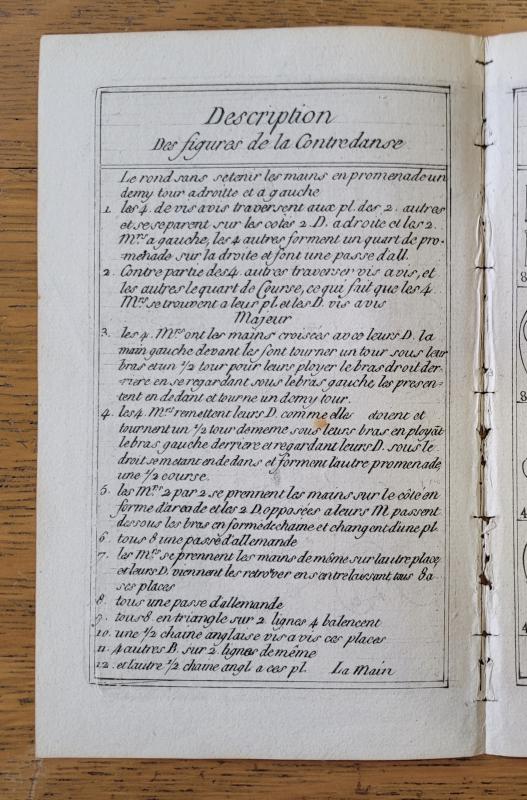 Description
Des figures de la Contredanse
Le rond sans se tenir les mains en promenade un
demy tour a droitte et a gauche
1. les 4. de vis a vis traversent aux pl. des 2. autres
et se separent sur les cotés 2. D. a droite et les 2.
Mrs a gauche, les 4 autres forment un quart de pro-
menade sur la droite et font une passe d'all.
2. Contre partie des 4. autres traverser vis a vis, et
les autres le quart de Course, ce qui fait que les 4.
Mrs se trouvent a leur pl. et les D. vis a vis
Majeur
3. les 4. Mrs ont les mains croisées avec leurs D. la
main gauche devant les font tourner un tour sous leur
bras et un 1/2 tour pour leurs ployer le bras droit der-
riere en se regardant sous le bras gauche, les presen-
tent en dedant et tourne un demy tour.
4. les 4. Mrs remettent leurs D. comme elles etoient et
tournent un 1/2 tour de meme sous leurs bras en ployāt
le bras gauche derriere et regardant leurs D. sous le
droit se metant en dedans et forment lautre promenade,
une 1/2 course.
5. les Mrs 2 par 2 se prennent les mains sur le côté en
forme d'arcade et les 2 D. opposées a leurs M. passent
dessous les bras en forme de chaine et changent d'une pl.
6. tous 8 une passe d'allemande
7. les Mrs se prennent les mains de même sur lautre place,
et leurs D. viennent les retrover en s'entrelaissant, tous 8 a
ses places
8. tous une passe d'allemande
9. tous 8. en triangle sur 2 lignes 4 balencent
10. une 1/2 chaine anglaise vis a vis ces places
11. 4 autres B. sur 2. lignes de même
12. et lautre 1/2 chaine angl. a ces pl. La Main